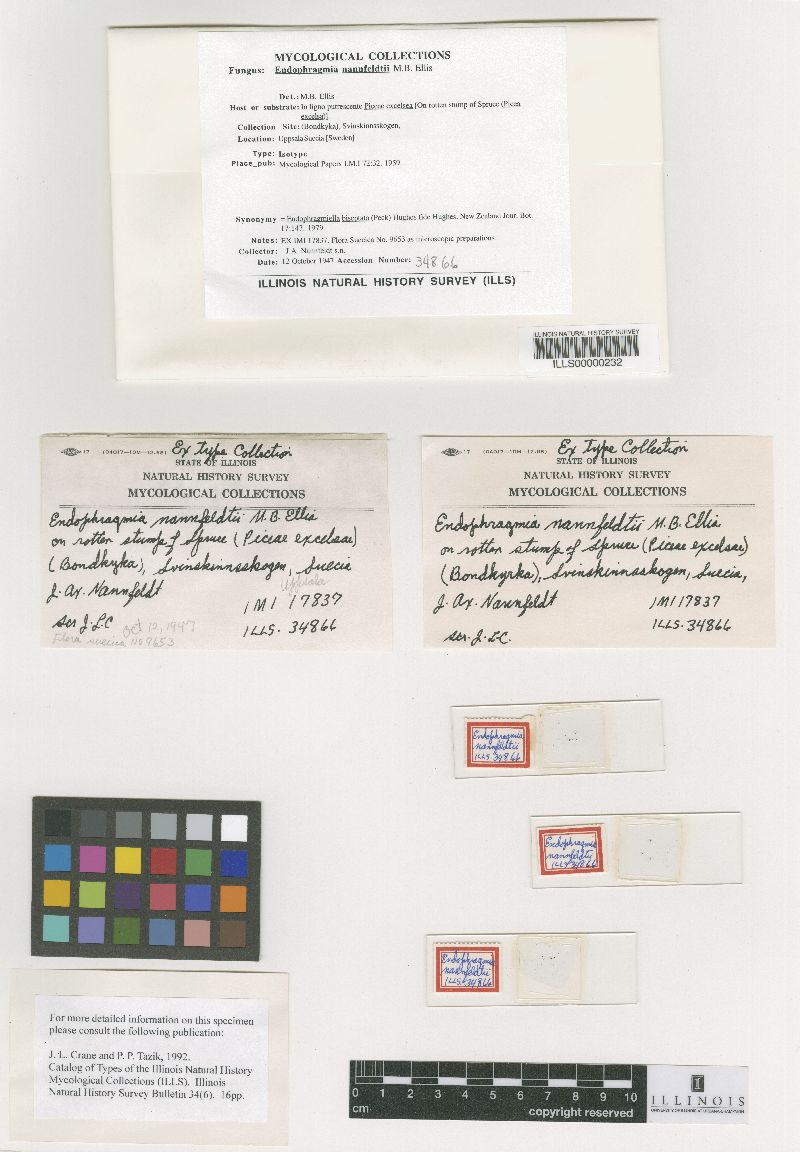 MYCOLOGICAL COLLECTIONS
Fungus: Endophragmia nannfeldtii M.B. Ellis
Det.: M.B. Ellis
Host or substrate: In ligno putrescente Piceae excelsea [On rotten stump of Spruce (Picea
excelsa)]
Collection Site: (Bondkyka), Svinskinnsskogen,
Location: Uppsala Suecia [Sweden]
Type: Isotype
Place_pub: Mycological Papers I.M.I 72:32, 1959
Synonymy = Endophragmiella biseptata (Peck) Hughes fide Hughes, New Zealand Jour. Bot.
17:147. 1979
Notes: EX IMI 17837, Flora Suecica No. 9653 as microscopic preparations
Collector: J.A. Nannfeldt s.n.
Date: 12 October 1947 Accession Number: 34866
ILLINOIS NATURAL HISTORY SURVEY (ILLS)
ILLINOIS NATURAL HISTORY SURVEY
ILLS00000232
17 (04017—10M—12-68) Ex type Collection
STATE OF ILLINOIS
NATURAL HISTORY SURVEY
MYCOLOGICAL COLLECTIONS
Endophragmia nannfeldtii M.B. Ellis
on rotten stump of Spruce (Piceae excelsae)
(Bondkyka), Svinskinnsskogen, Suecia
Uppsala
J. Ax. Nannfeldt
IMI 17837
scr. J.L.C Oct 12, 1947
ILLS. 34866
Flora suecica No 9653
17 (04017—10M—12-68) Ex type Collection
STATE OF ILLINOIS
NATURAL HISTORY SURVEY
MYCOLOGICAL COLLECTIONS
Endophragmia nannfeldtii M.B. Ellis
on rotten stump of Spruce (Piceae excelsae)
(Bondkyrka), Svinskinnsskogen, Suecia,
J. Ax. Nannfeldt IMI 17837
ILLS. 34866
scr. J.L.C.
Endophragmia
nannfeldtii
ILLS 34866
Endophragmia
nannfeldtii
ILLS 34866
Endophragmia
nannfeldtii
ILLS 34866
For more detailed information on this specimen
please consult the following publication:
J. L. Crane and P. P. Tazik, 1992.
Catalog of Types of the Illinois Natural History
Mycological Collections (ILLS). Illinois
Natural History Survey Bulletin 34(6). 16pp.
0 1 2 3 4 5 6 7 8 9 10
cm
copyright reserved
I
ILLINOIS
UNIVERSITY OF ILLINOIS AT URBANA-CHAMPAIGN